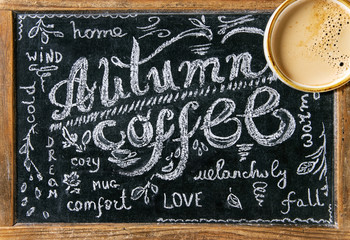 home
WIND
Autumn
cold
coffee
warm
DREAM
cozy
MUG
melancholy
comfort
LOVE
fall